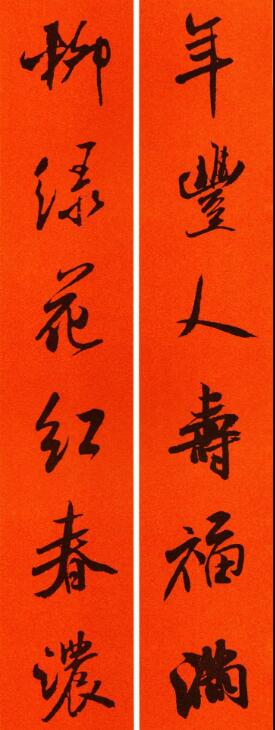 年豐人壽福滿
柳绿花红春濃